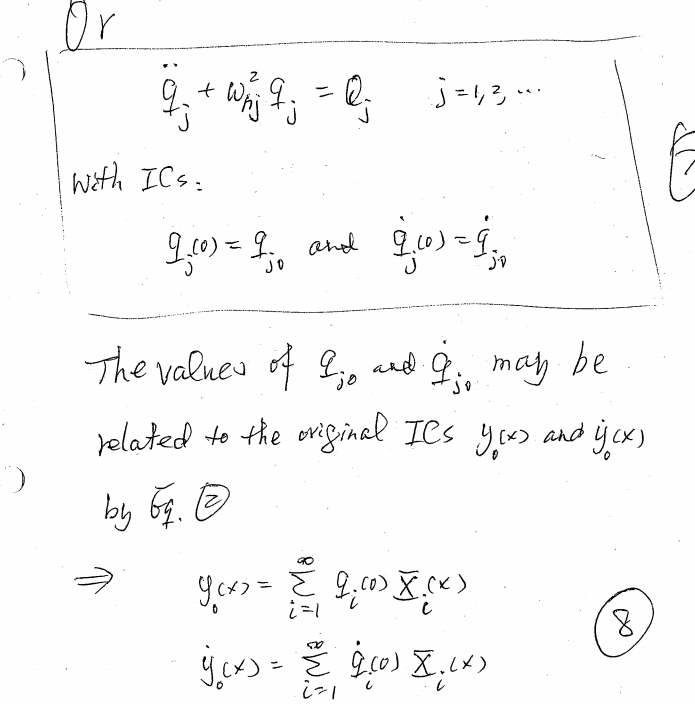 Or
q̈_j + ω_nj² q_j = Q_j    j = 1, 2, ...
With ICs:
q_j(0) = q_j0 and q̇_j(0) = q̇_j0
The values of q_j0 and q̇_j0 may be
related to the original ICs y_0(x) and ẏ_0(x)
by Eq. ②
⇒ y_0(x) = ∑_{i=1}^{∞} q_i(0) X̄_i(x)
⑧
ẏ_0(x) = ∑_{i=1}^{∞} q̇_i(0) X̄_i(x)